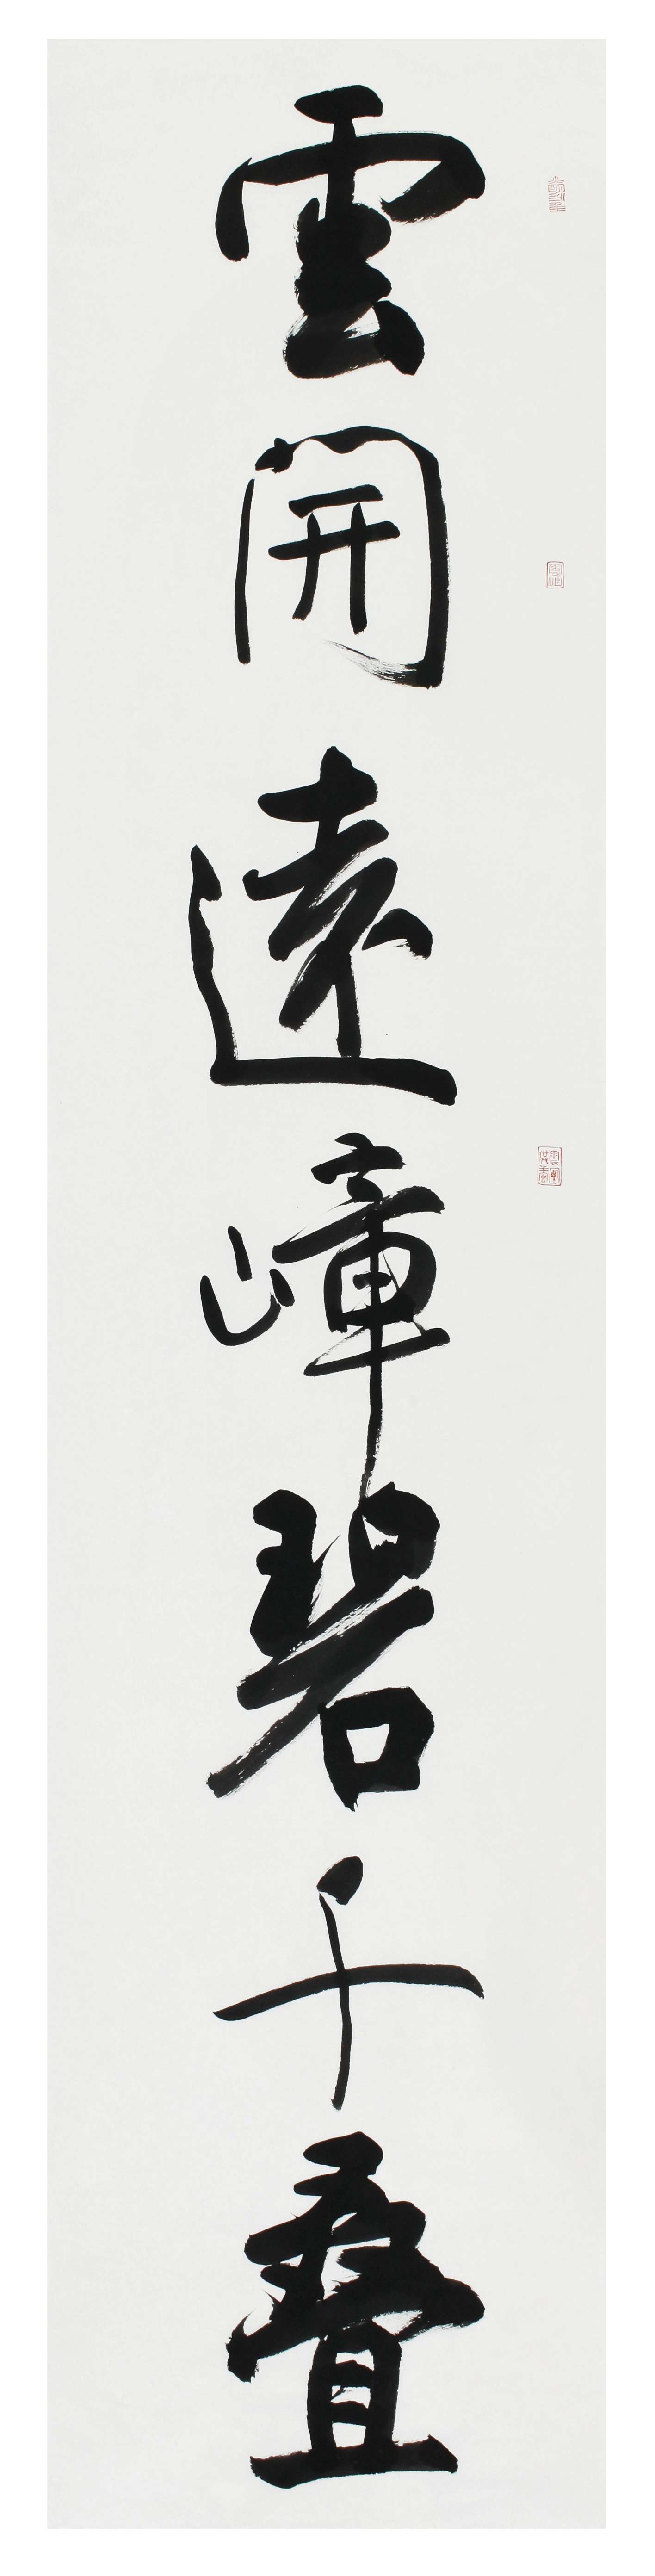 雲開遠嶂碧千叠